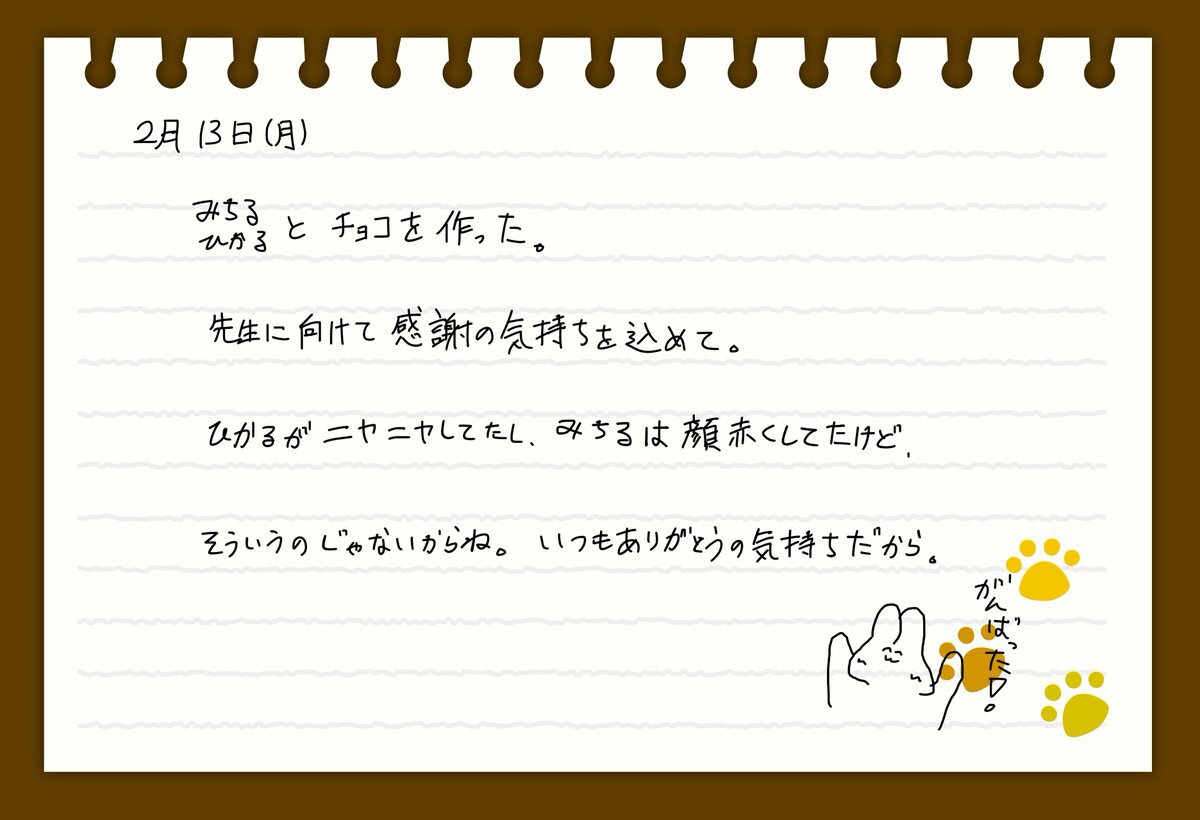 2月13日(月)
みちる
ひかる
とチョコを作った。
先生に向けて感謝の気持ちを込めて。
ひかるがニヤニヤしてたし、みちるは顔赤くしてたけど、
そういうのじゃないからね。いつもありがとうの気持ちだから。
がんばった!